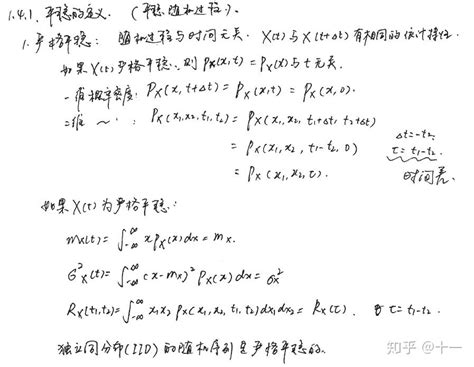 1.4.1. 平稳的定义. (平稳随机过程).
1. 严格平稳: 随机过程与时间无关. X(t)与X(t+Δt)有相同的统计特征.
如果X(t)严格平稳, 则 Px(x,t) = Px(x)与t无关.
一维概率密度: Px(x, t+Δt) = Px(x,t) = Px(x,0).
二维 ~ : Px(x1,x2,t1,t2) = Px(x1,x2, t1+Δt, t2+Δt)
= Px(x1,x2, t1-t2, 0)
Δt=-t2.
= Px(x1,x2,τ).
τ=t1-t2.
时间差.
如果X(t)为严格平稳:
mx(t) = ∫_{-∞}^{∞} x Px(x) dx = mx.
σ²x(t) = ∫_{-∞}^{∞} (x-mx)² Px(x) dx = σx²
Rx(t1,t2) = ∫_{-∞}^{∞} x1x2 Px(x1,x2,t1,t2) dx1dx2 = Rx(τ). τ=t1-t2.
独立同分布(IID)的随机序列是严格平稳的.
知乎 @十一